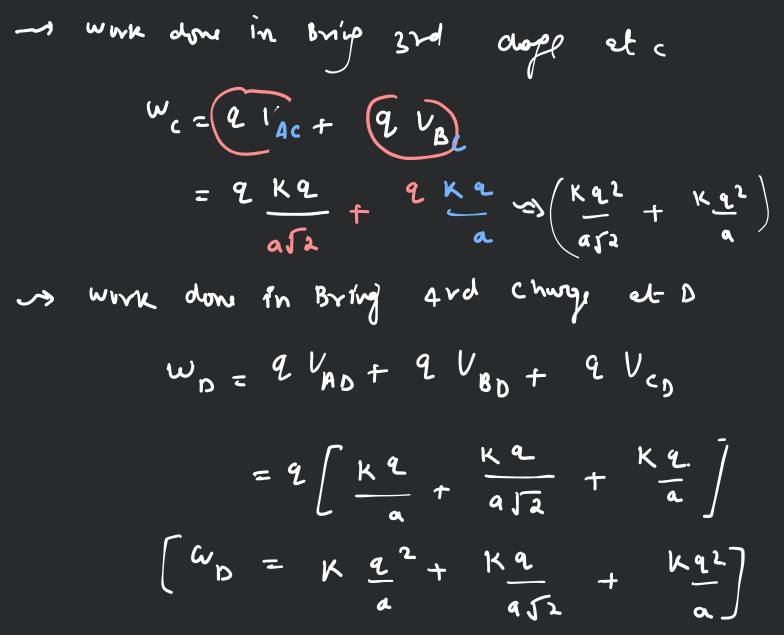 → work done in Bring 3rd charge at c
W_C = q V_AC + q V_BC
= q Kq/a√2 + q Kq/a ⇝ (Kq²/a√2 + Kq²/a)
→ work done in Bring 4rd charge at D
W_D = q V_AD + q V_BD + q V_CD
= q [Kq/a + Kq/a√2 + Kq/a]
[W_D = K q²/a + Kq/a√2 + Kq²/a]